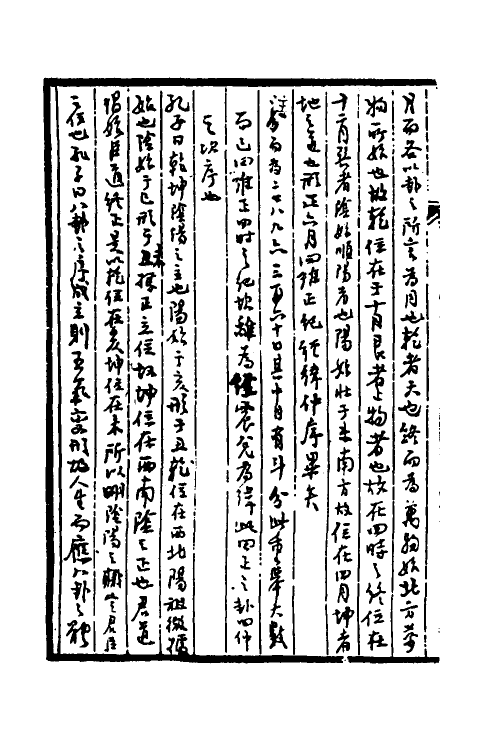 月而各以卦之所言為月也乾者天也終而為萬物始北方萬
物所始也故乾位在于十月艮者止物者也故在四時之終位在
十二月巽者陰始順陽者也陽始壯于東南方故位在四月坤者
地之道也形正六月四維正紀經緯仲序畢矣
而為七八九六三百六十日且十日有斗分此重舉大數
而已四維正四時之紀坎離為經震兌為緯此四正之卦四仲
之次序也
孔子曰乾坤陰陽之主也陽始于亥形于丑乾位在西北陽祖微據
始也陰始于巳形于未據正立位故坤位在西南陰之正也君道
倡始臣道終正是以乾位在亥坤位在未所以明陰陽之職定君臣
之位也孔子曰八卦之序成立則五氣變形故人生而應八卦之體